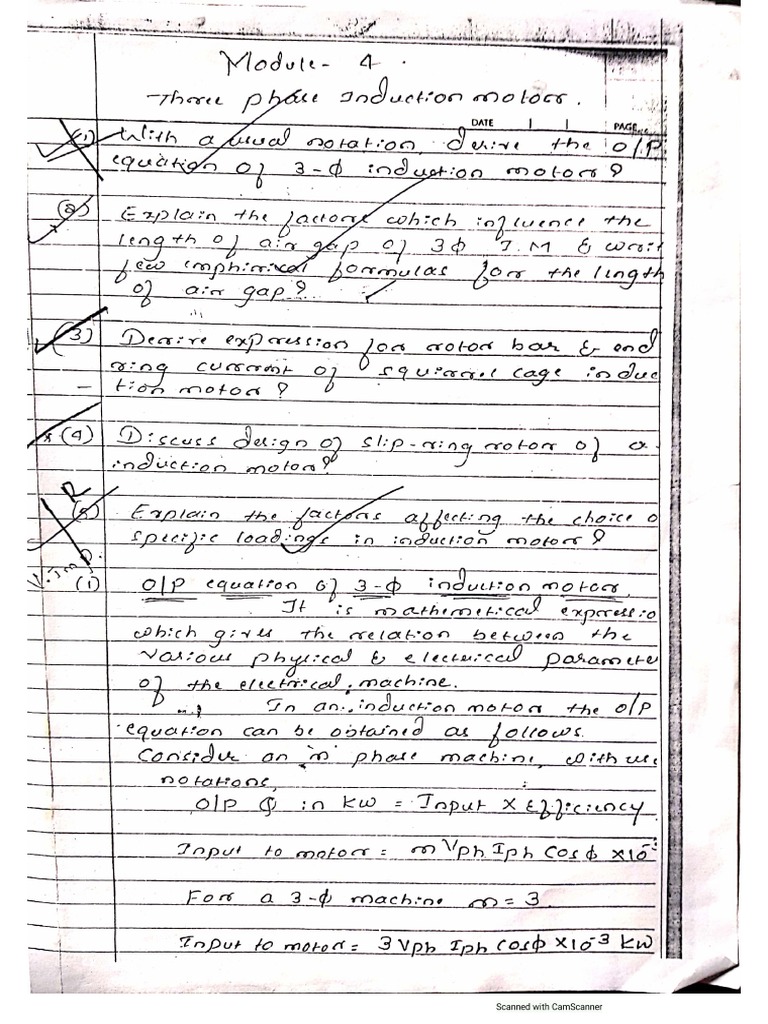 Module - 4 .
Three phase Induction motors.
DATE | | PAGE
(1) With a usual notation, derive the O/P
equation of 3-ϕ induction motors?
(2) Explain the factors which influence the
length of air gap of 3ϕ I.M & writ
few imphirical formulas for the length
of air gap?
(3) Derive expression for rotor bar & end
ring current of squirrel cage induc
- tion motor?
(4) Discuss design of slip-ring rotor of a
induction motor?
R
(5) Explain the factors affecting the choice o
specific loadings in induction motors?
V. Imp.
(1) O/P equation of 3-ϕ induction motors.
It is mathemetical expressio
which gives the relation between the
various physical & electrical paramete
of the electrical machine.
In an induction motors the O/P
equation can be obtained as follows.
Consider an 'm' phase machine, with us
notations,
O/P Q in kw = Input X Efficiency
Input to motor = m Vph Iph Cosϕ X10-
For a 3-ϕ machine m = 3.
Input to motor = 3 Vph Iph cosϕ X10-3 kw
Scanned with CamScanner